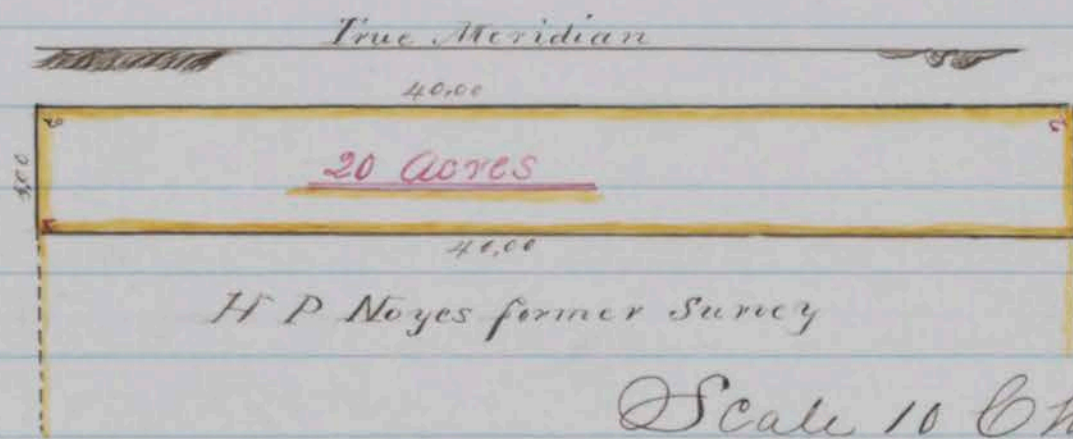 True Meridian
40,00
5,00
20 Acres
40,00
H P Noyes former Survey
Scale 10 Ch